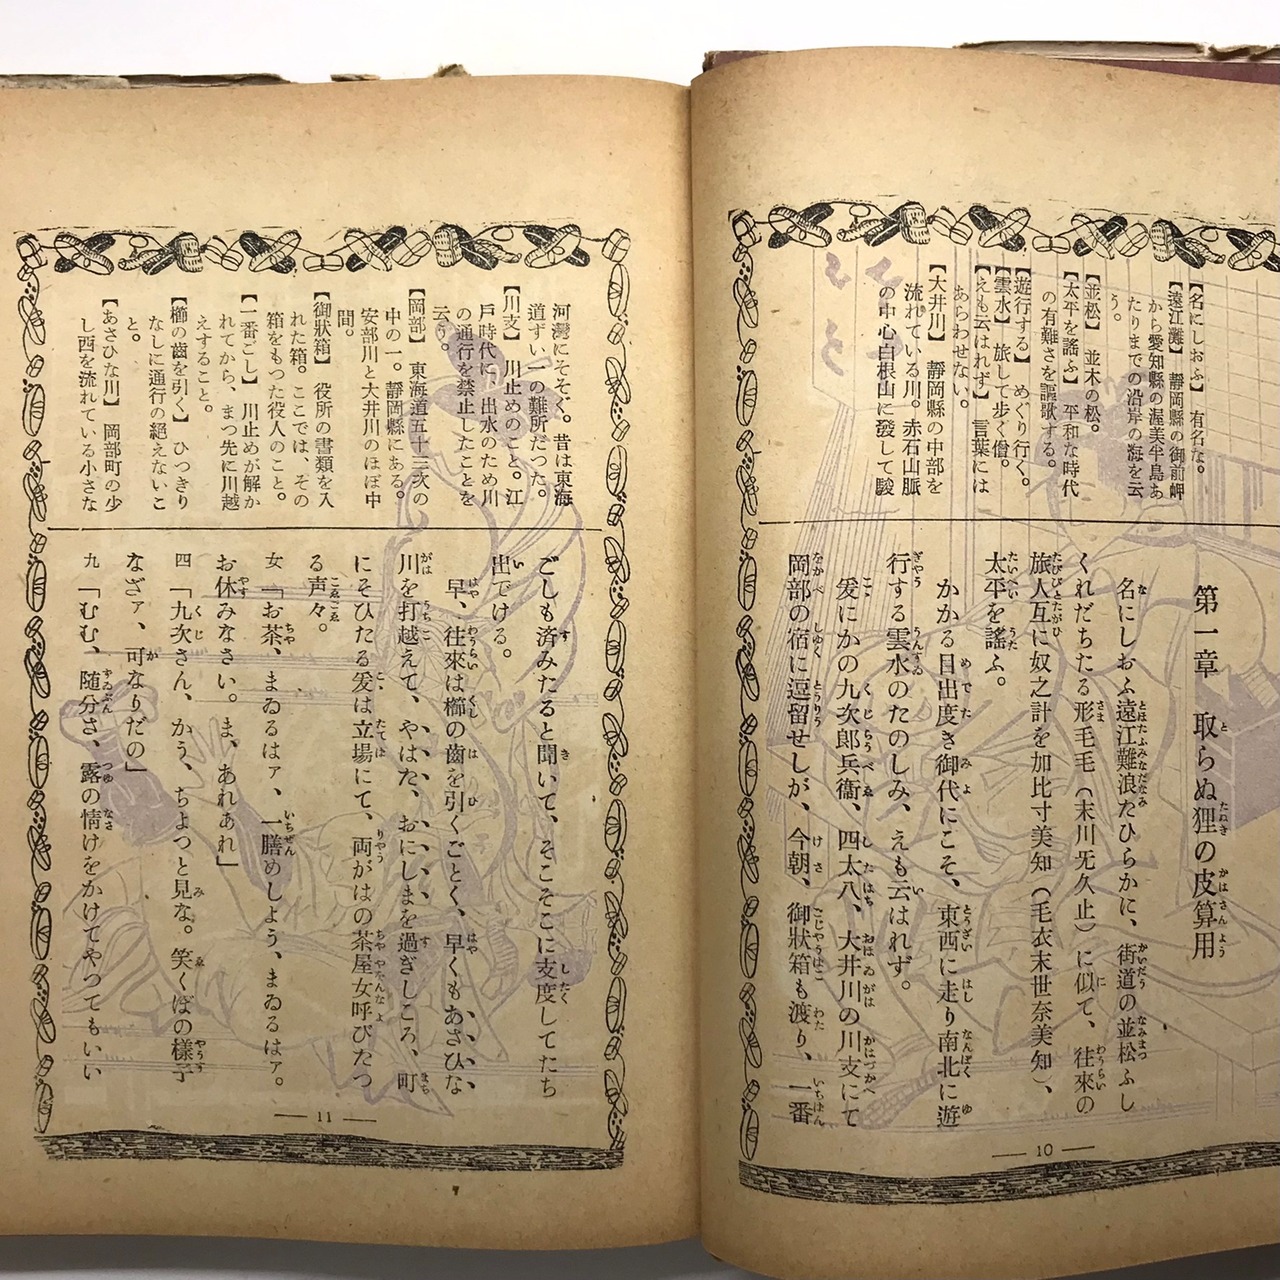 【名にしおふ】 有名な。
【遠江灘】 靜岡縣の御前岬
から愛知縣の渥美半島あ
たりまでの沿岸の海を云
う。
【並松】 並木の松。
【太平を謠ふ】 平和な時代
の有難さを謳歌する。
【遊行する】 めぐり行く。
【雲水】 旅して歩く僧。
【えも云はれず】 言葉には
あらわせない。
【大井川】 靜岡縣の中部を
流れている川。赤石山脈
の中心白根山に發して駿
第一章 取らぬ狸の皮算用
名にしおふ遠江難浪たひらかに、街道の並松ふし
くれだちたる形毛毛(末川旡久止)に似て、往來の
旅人互に奴之計を加比寸美知(毛衣末世奈美知)、
太平を謠ふ。
かかる目出度き御代にこそ、東西に走り南北に遊
行する雲水のたのしみ、えも云はれず。
爰にかの九次郎兵衞、四太八、大井川の川支にて
岡部の宿に逗留せしが、今朝、御狀箱も渡り、一番
— 10 —
河灣にそそぐ。昔は東海
道ずい一の難所だつた。
【川支】 川止めのこと。江
戸時代に、出水のため川
の通行を禁止したことを
云う。
【岡部】 東海道五十三次の
中の一。靜岡縣にある。
安部川と大井川のほぼ中
間。
【御狀箱】 役所の書類を入
れた箱。ここでは、その
箱をもつた役人のこと。
【一番ごし】 川止めが解か
れてから、まつ先に川越
えすること。
【櫛の齒を引く】 ひつきり
なしに通行の絕えないこ
と。
【あさひな川】 岡部町の少
し西を流れている小さな
ごしも済みたると聞いて、そこそこに支度してたち
出でける。
早、往來は櫛の齒を引くごとく、早くもあさひな
川を打越えて、やはた、おにしまを過ぎしころ、町
にそひたる爰は立場にて、両がはの茶屋女呼びたつ
る声々。
女「お茶、まゐるはァ、一膳めしよう、まゐるはァ。
お休みなさい。ま、あれあれ」
四「九次さん、かう、ちよつと見な。笑くぼの様子
なざァ、可なりだの」
九「むむ、随分さ、露の情けをかけてやつてもいい
— 11 —